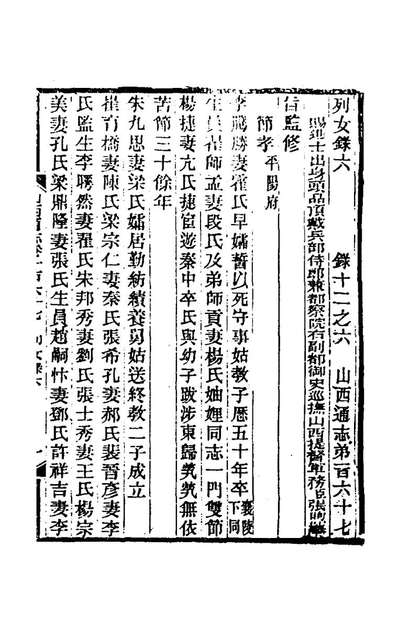 列女錄六　錄十二之六　山西通志第一百六十七
賜進士出身頭品頂戴兵部侍郎兼都察院右副都御史巡撫山西提督軍務臣張煦
監修
節孝平陽府
李騰勝妻翟氏早孀誓以死守事姑教子歷五十年卒襄陵下同
生員喬師孟妻段氏及弟師貢妻楊氏妯娌同志一門雙節
楊捷妻亢氏捷宦遊秦中卒氏與幼子跋涉東歸煢煢無依
苦節三十餘年
朱九思妻梁氏孀居勤紡績養舅姑送終教二子成立
崔有橋妻陳氏梁宗仁妻秦氏張希孔妻郝氏裴晉彥妻李
氏監生李騁然妻翟氏朱邦秀妻劉氏張士秀妻王氏楊宗
美妻孔氏梁鼎隆妻張氏生員趙嗣忭妻鄧氏許祥吉妻李